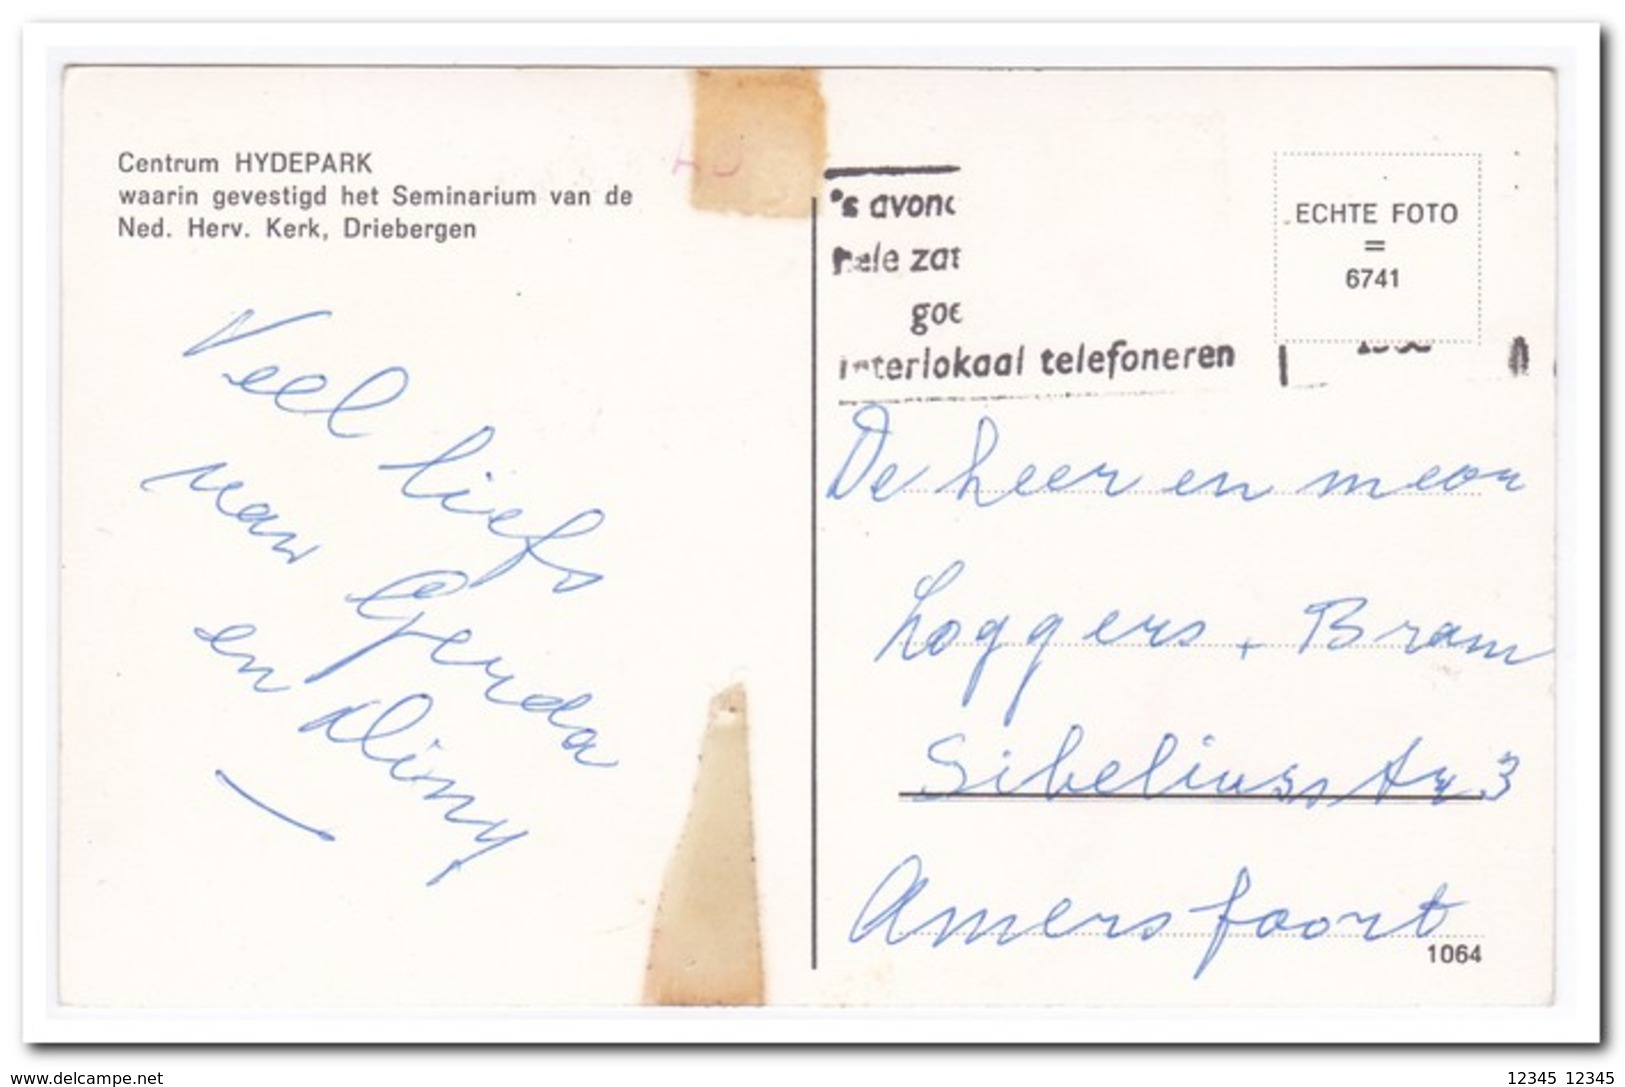 Centrum HYDEPARK
waarin gevestigd het Seminarium van de
Ned. Herv. Kerk, Driebergen
Veel liefs
van Gerda
en Dimy
's avond
hele zat
goe
interlokaal telefoneren
ECHTE FOTO
=
6741
De heer en mevr
Loggers + Bram
Sibeliusstr 3
Amersfoort
1064
www.delcampe.net
12345 12345